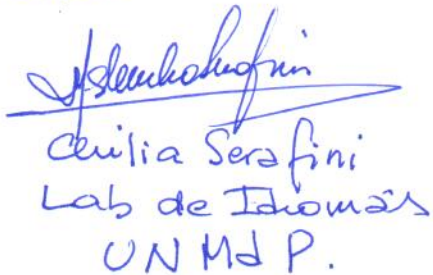 Cecilia Serafini
Lab de Idiomas
UNMdP.